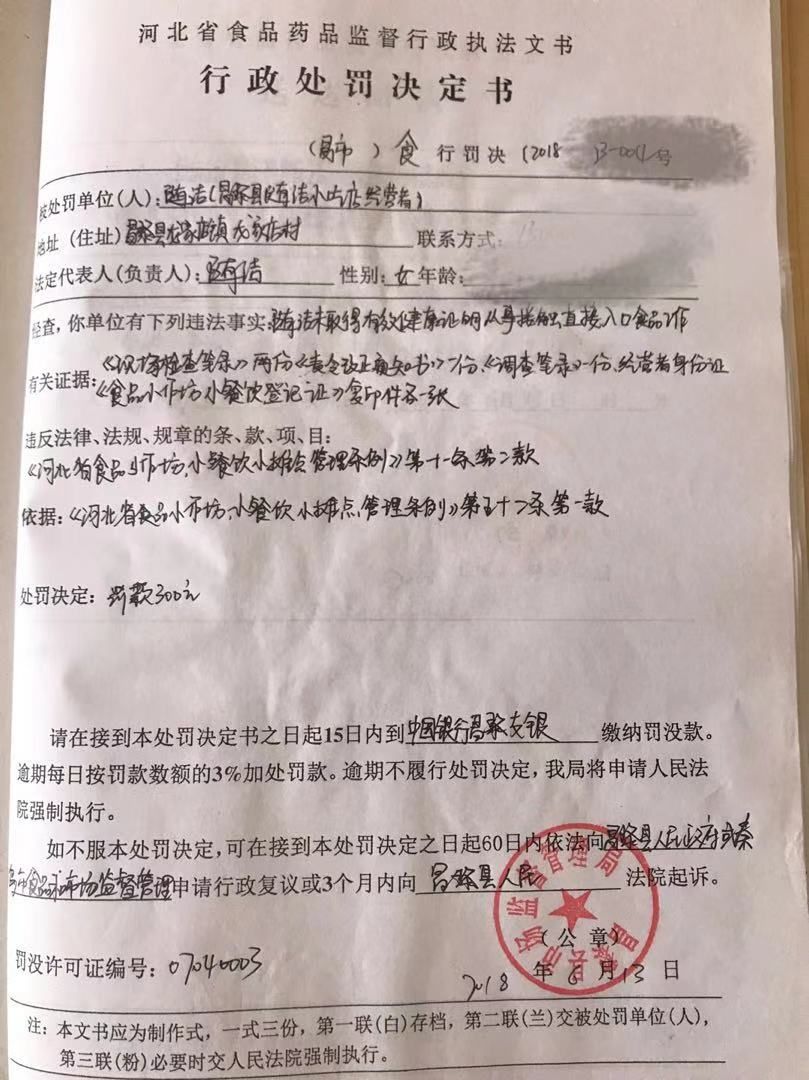 河北省食品药品监督行政执法文书
行政处罚决定书
(昌市)食行罚决(2018 号
被处罚单位(人):陆洁(昌黎县陆洁小吃店经营者)
地址(住址)昌黎县龙家店镇龙家店村 联系方式:
法定代表人(负责人):陆洁 性别:女年龄:
经查,你单位有下列违法事实:陆洁未取得有效健康证明从事接触直接入口食品工作
有关证据:《现场检查笔录》两份《责令改正通知书》一份、《调查笔录》一份、经营者身份证
《食品小作坊小餐饮登记证》复印件各一张
违反法律、法规、规章的条、款、项、目:
《河北省食品小作坊、小餐饮小摊点管理条例》第十一条第二款
依据:《河北省食品小作坊、小餐饮小摊点管理条例》第五十二条第一款
处罚决定:罚款300元
请在接到本处罚决定书之日起15日内到中国银行昌黎支银缴纳罚没款。
逾期每日按罚款数额的3%加处罚款。逾期不履行处罚决定,我局将申请人民法
院强制执行。
如不服本处罚决定,可在接到本处罚决定之日起60日内依法向昌黎县人民政府或秦
皇岛市食品和市场监督管理申请行政复议或3个月内向昌黎县人民法院起诉。
(公章)
罚没许可证编号:07040003
2018年6月13日
注:本文书应为制作式,一式三份,第一联(白)存档,第二联(兰)交被处罚单位(人),
第三联(粉)必要时交人民法院强制执行。